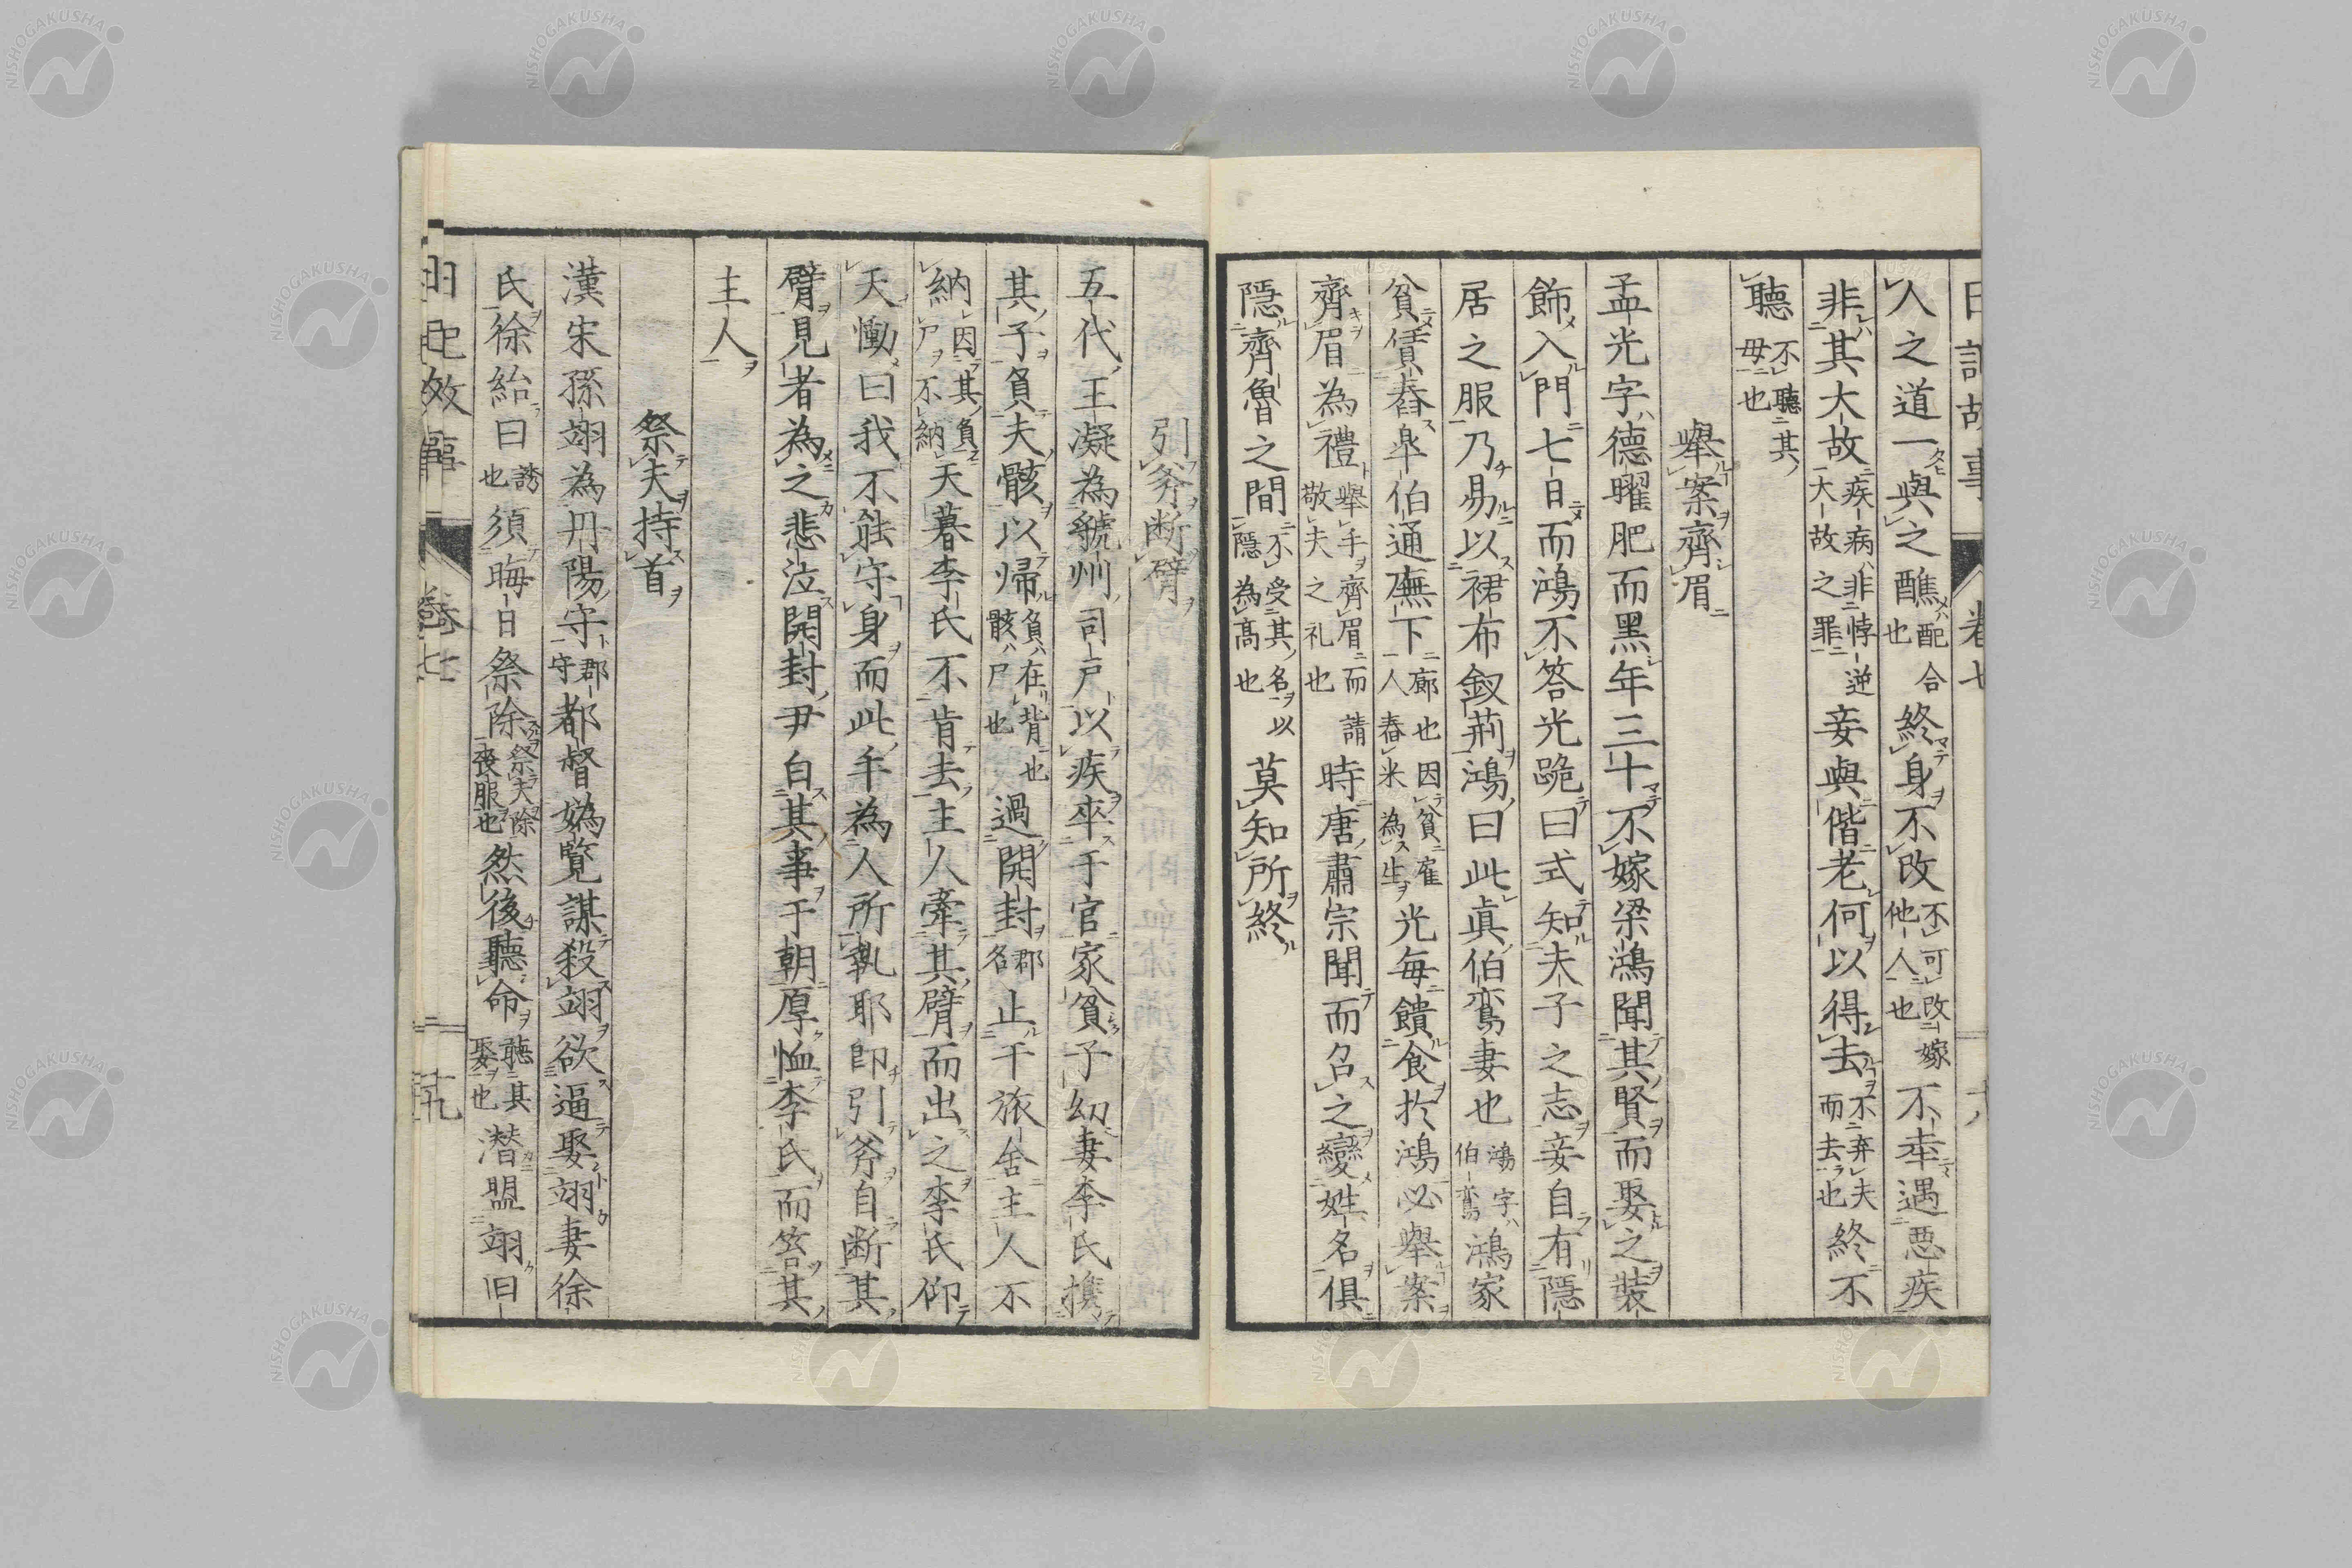 人之道一與之醮配合也終身不改不可改嫁他人也不幸遇惡疾
非其大故疾病非悖逆大故之罪妾與偕老何以得去不弃夫而去也終不
聽不聽其母也
舉案齊眉
孟光字德曜肥而黑年三十不嫁梁鴻聞其賢而娶之裝
飾入門七日而鴻不答光跪曰式知夫子之志妾自有隱
居之服乃易以裙布釵荊鴻曰此真伯鸞妻也鴻字伯鸞鴻家
貧賃舂皐伯通廡下廊也因貧雇人舂米為生光每饋食於鴻必舉案
齊眉為禮舉手齊眉而請敬夫之礼也時唐肅宗聞而召之變姓名俱
隱齊魯之間不受其名以隱為高也莫知所終
引斧断臂
五代王凝為虢州司户以疾卒于官家貧子幼妻李氏携
其子負夫骸以帰負在背也骸尸也過開封郡名止于旅舍主人不
納因其負尸不納天暮李氏不肯去主人牽其臂而出之李氏仰
天慟曰我不能守身而此手為人所執耶即引斧自断其
臂見者為之悲泣開封尹白其事于朝厚恤李氏而笞其
主人
祭夫持首
漢宋孫翊為丹陽守郡守都督媯覧謀殺翊欲逼娶翊妻徐
氏徐紿曰誘也須晦日祭除祭夫除丧服也然後聽命聽其娶也潜盟翊旧
卷七
NISHOGAKUSHA